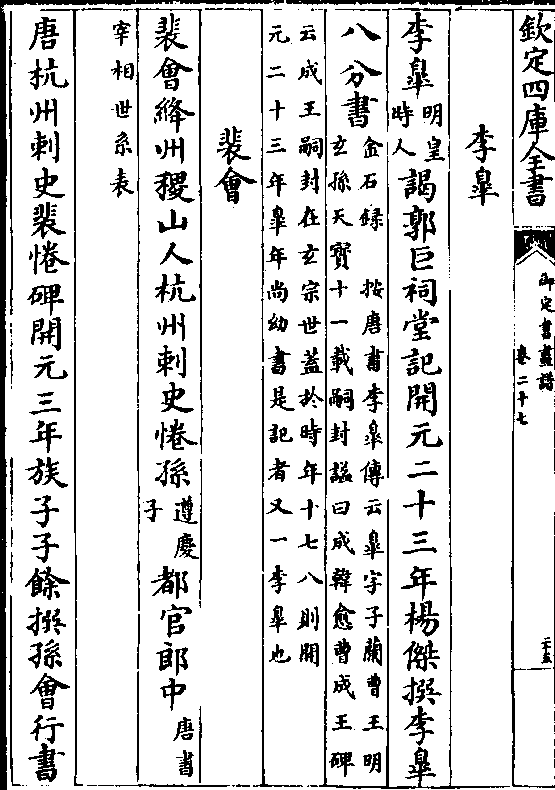 欽定四庫全書
御定書畫譜
卷二十七
二十五
李皐
李皐明皇時人謁郭巨祠堂記開元二十三年楊傑撰李皐
八分書金石録 按唐書李皐傳云皐字子蘭曹王明
玄孫天寳十一載嗣封諡曰成韓愈曹成王碑
云成王嗣封在玄宗世蓋於時年十七八則開
元二十三年皐年尚幼書是記者又一李皐也
裴會
裴會絳州稷山人杭州刺史惓孫遵慶子都官郎中唐書
宰相世系表
唐杭州刺史裴惓碑開元三年族子子餘撰孫會行書